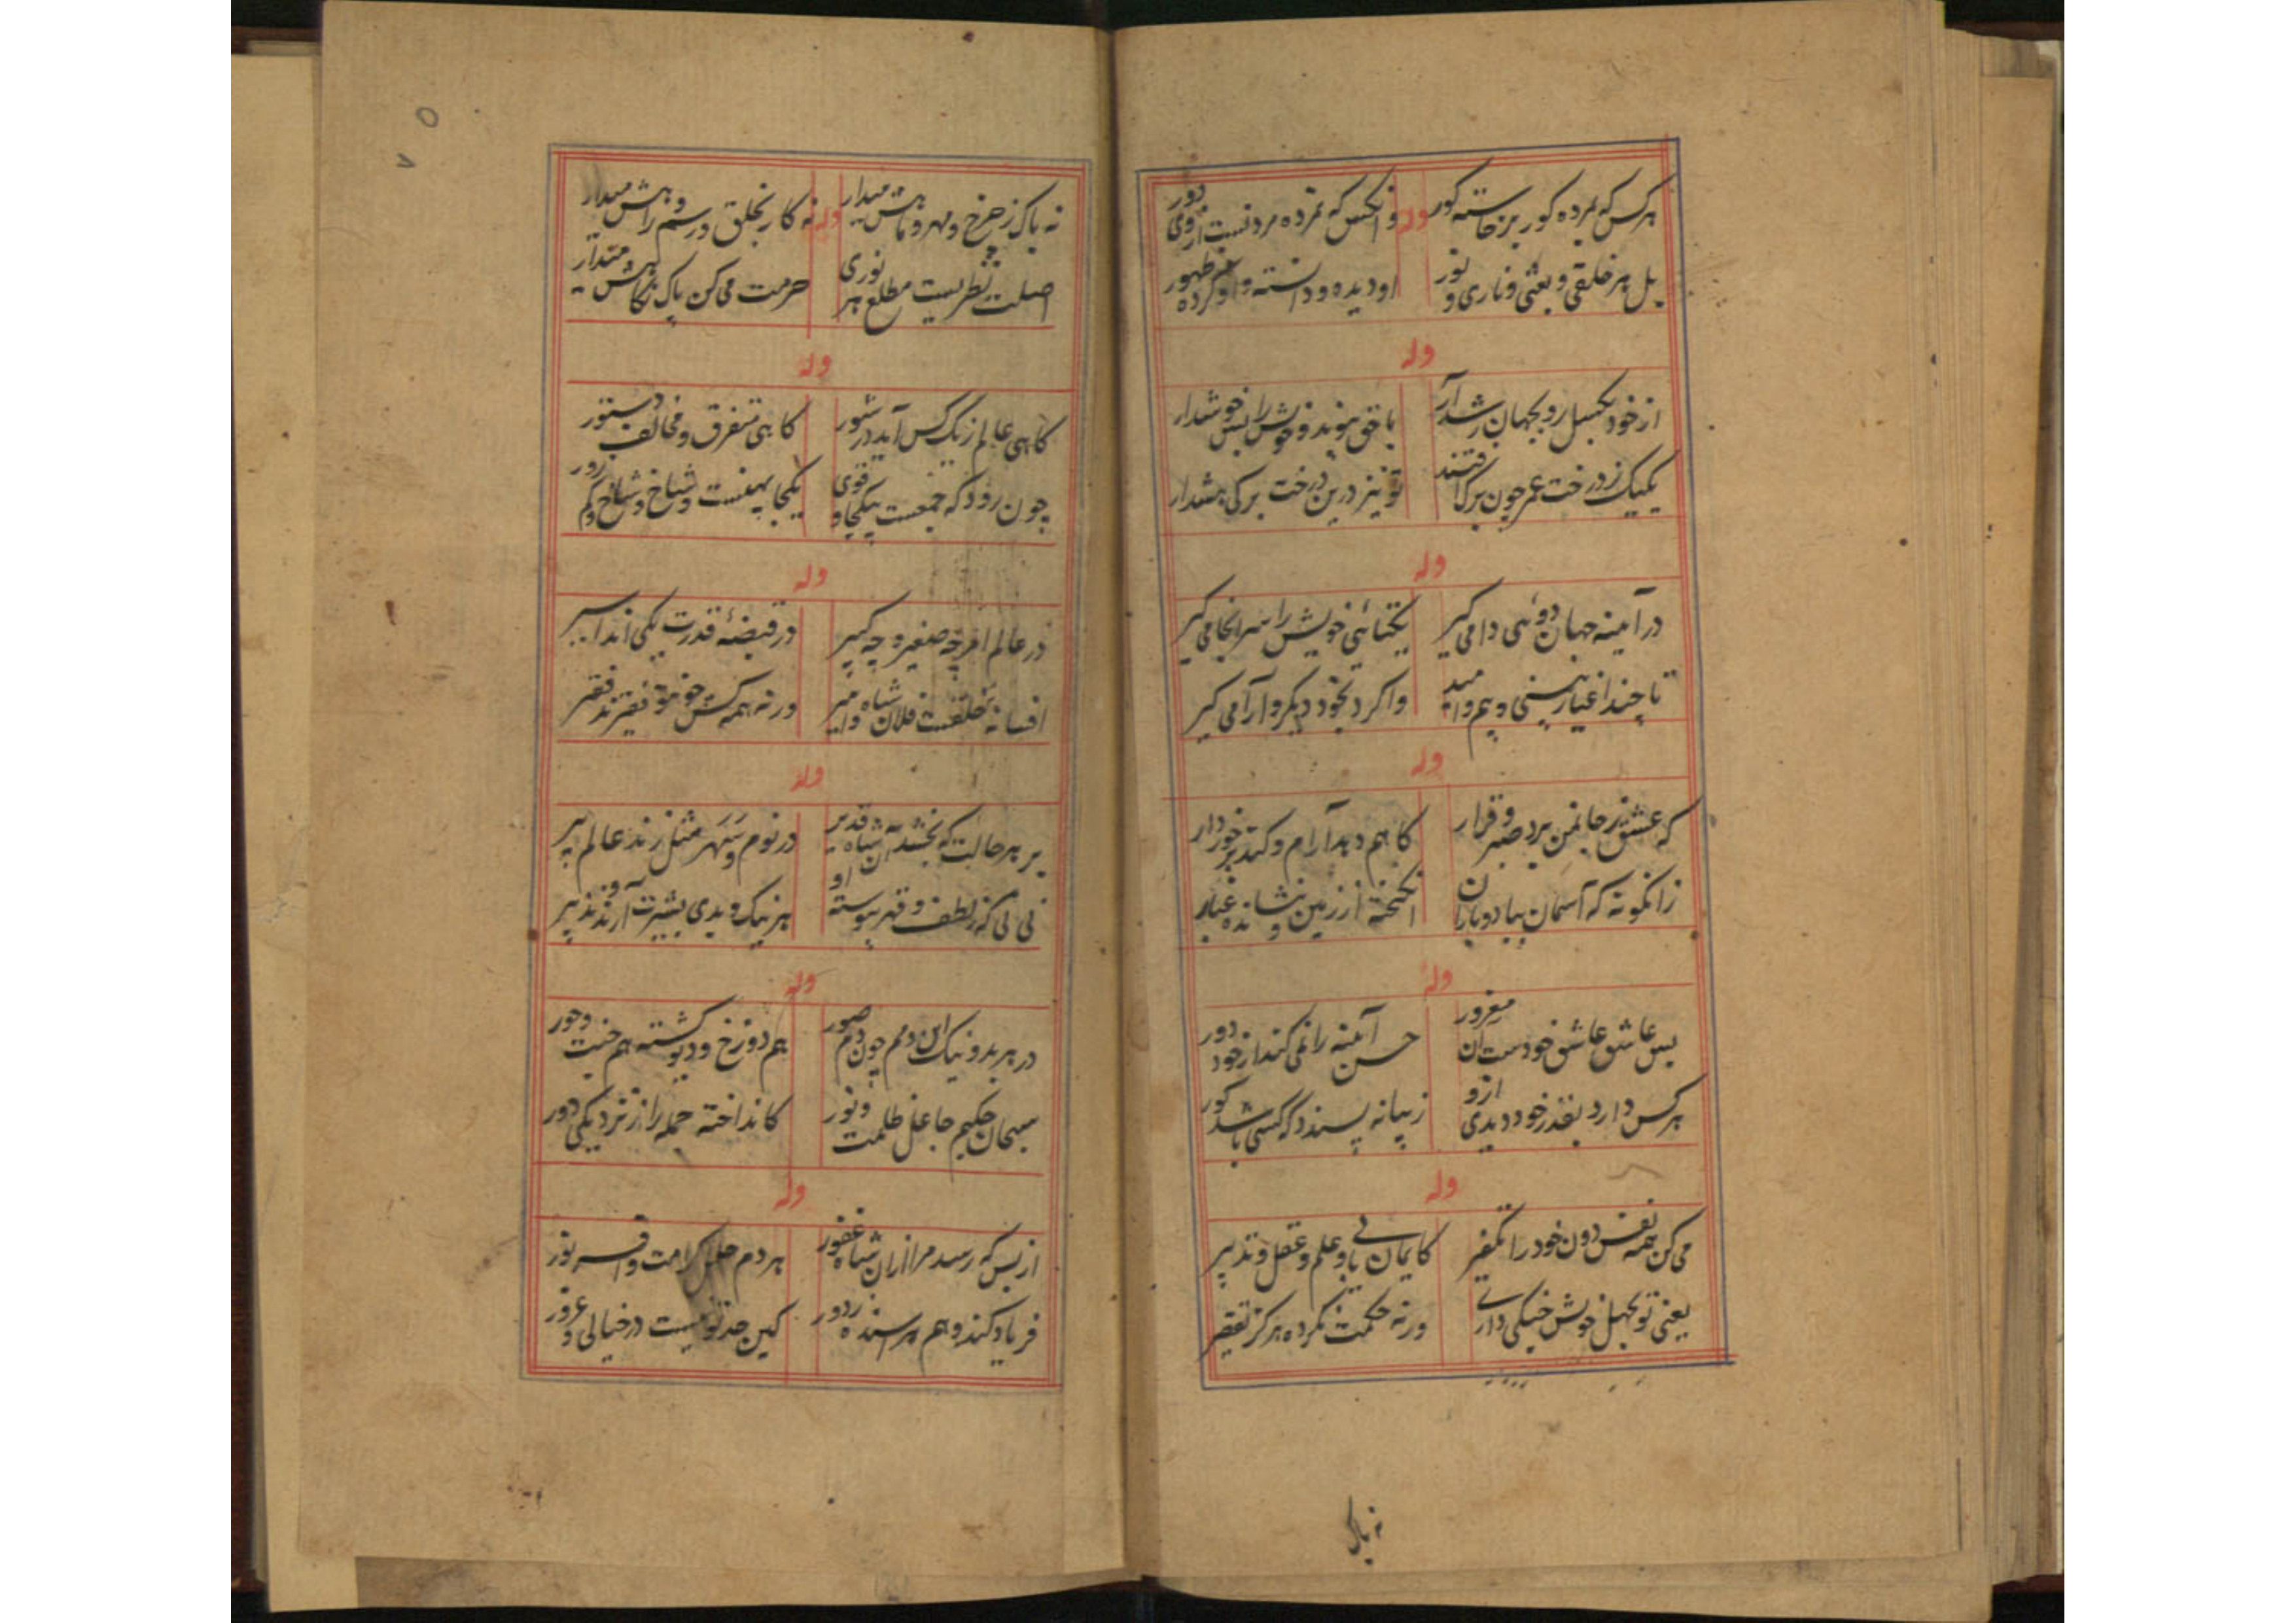 هر کس که بمرده کور برخاسته کور
وله
وانکس که نمرده مرد نیست از وی دور
بل هر خلقی و بعثی و ناری و نور
او دیده و دانسته و او کرده ظهور
وله
از خود بکسل رو بجهان رشد آر
با حق پیوند و خویش را بس خوشدار
یکیک ز درخت عمر چون برک افتند
تو نیز درین درخت برکی هشدار
وله
در آینه جهان دوئی دامی کیر
یکتائی خویش را سرانجامی کیر
تا چند اغیار بینی و بیم و امید
واکرد بخود دیکر و آرامی کیر
وله
که عشق ز جانمن برد صبر و قرار
کاهم دهد آرام و کند برخوردار
زانکونه که آسمان بباد و باران
انکیخته از زمین و نشانده غبار
وله
بس عاشق عاشق خودست آن مغرور
حسن آینه را نمی کند از خود دور
هر کس دارد بقدر خود دیدی ازو
زیبا نه پسندد که کسی باشد کور
وله
می کن همه نفس دون خود را تکفیر
کایمان بی باو علم و عقل و تدبیر
یعنی تو بجهل خویش خنکی داری
ورنه حکمت نکرده هرکز تقصیر
نه باک
نه باک ز چرخ و مهر و ماهش میدار
وله
نه کار بخلق و رسم و راهش میدار
اصلت نظریست مطلع هر نوری
حرمت می کن پاک نکاهش میدار
وله
کاهی عالم ز یک کس آید در شور
کاهی متفرق و مخالف دستور
چون رود که جمعست بیکجا و قوی
یکجا پهنست و شاخ شاخ و کم زور
وله
در عالم امر چه صغیر و چه کبیر
در قبضهٔ قدرت یکی اند اسیر
افسانهٔ خلقتست فلان شاه و امیر
ورنه همه کس چو من و تو فقیرند فقیر
وله
بر هر حالت که بخشد آن شاه قدیر
در نوم و سهر مثل زند عالم پیر
نی نی که ز لطف و قهر پیوسته او
هر نیک و بدی بشیرت آرند و نذیر
وله
در هر بد و نیک این دمم چون دم صور
هم دوزخ و دیو کشته هم جنت و حور
سبحان حکیم جاعل ظلمت و نور
کانداخته جمله را ز نزدیکی دور
وله
از بس که رسد مرا از ان شاه غفور
هر دم خلل کرامت و افسر نور
فریاد کند و هم پرسنده ز دور
کین جز تو نیست در خیالی و غرور